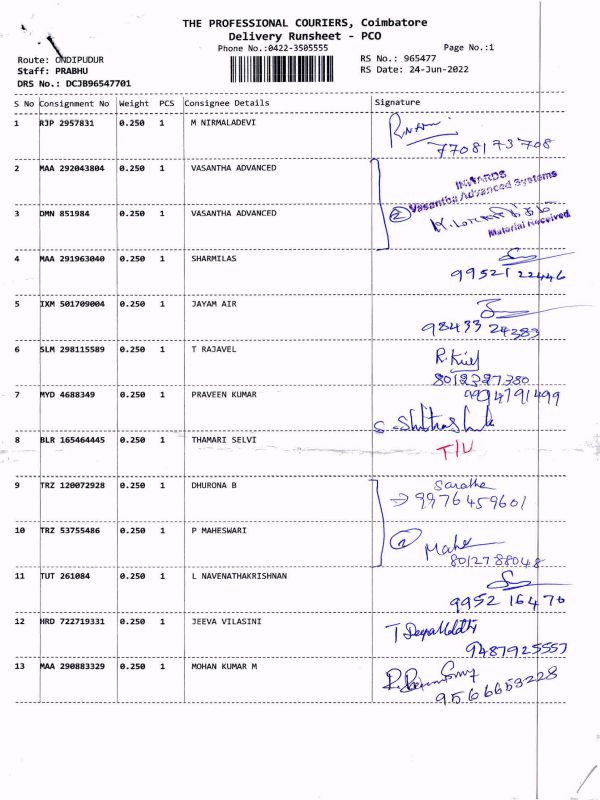 THE PROFESSIONAL COURIERS, Coimbatore
Delivery Runsheet - PCO
Phone No.:0422-3505555 Page No.:1
Route: ONDIPUDUR RS No.: 965477
Staff: PRABHU RS Date: 24-Jun-2022
DRS No.: DCJB96547701
S No Consignment No Weight PCS Consignee Details Signature
1 RJP 2957831 0.250 1 M NIRMALADEVI
7708173708
2 MAA 292043804 0.250 1 VASANTHA ADVANCED
INWARDS
Vasantha Advanced Systems
3 DMN 851984 0.250 1 VASANTHA ADVANCED
2
Material Received
4 MAA 291963040 0.250 1 SHARMILAS
9952122446
5 IXM 501709004 0.250 1 JAYAM AIR
98433 24283
6 SLM 298115589 0.250 1 T RAJAVEL
8012327380
7 MYD 4688349 0.250 1 PRAVEEN KUMAR 9994791499
8 BLR 165464445 0.250 1 THAMARI SELVI
9 TRZ 120072928 0.250 1 DHURONA B
9976459601
10 TRZ 53755486 0.250 1 P MAHESWARI
2
8012788048
11 TUT 261084 0.250 1 L NAVENATHAKRISHNAN
9952 16470
12 HRD 722719331 0.250 1 JEEVA VILASINI
9487925557
13 MAA 290883329 0.250 1 MOHAN KUMAR M
9566653228